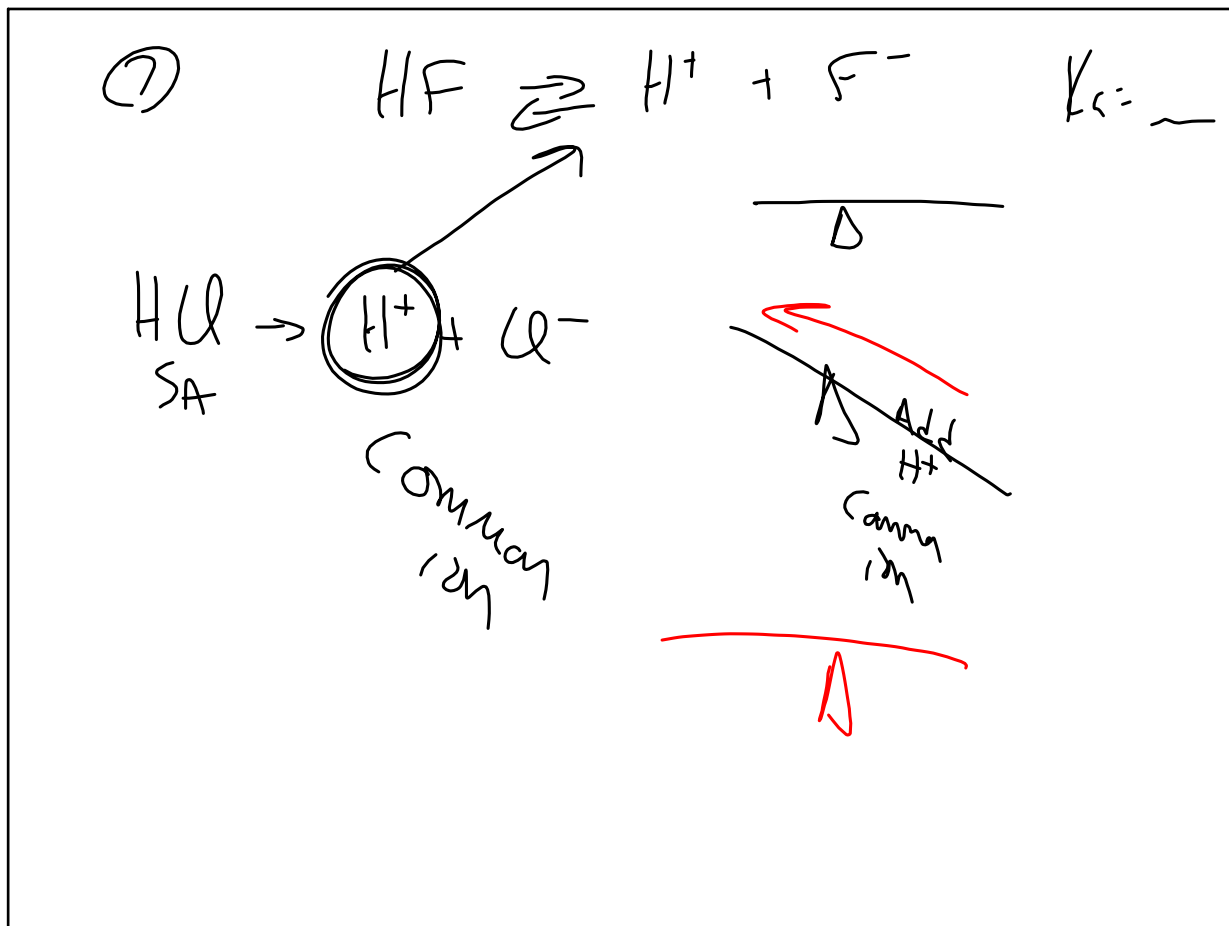 ⑦ HF ⇌ H⁺ + F⁻ Ka = __
HCl → H⁺ + Cl⁻
SA
Common
ion
Add
H+
Common
ion